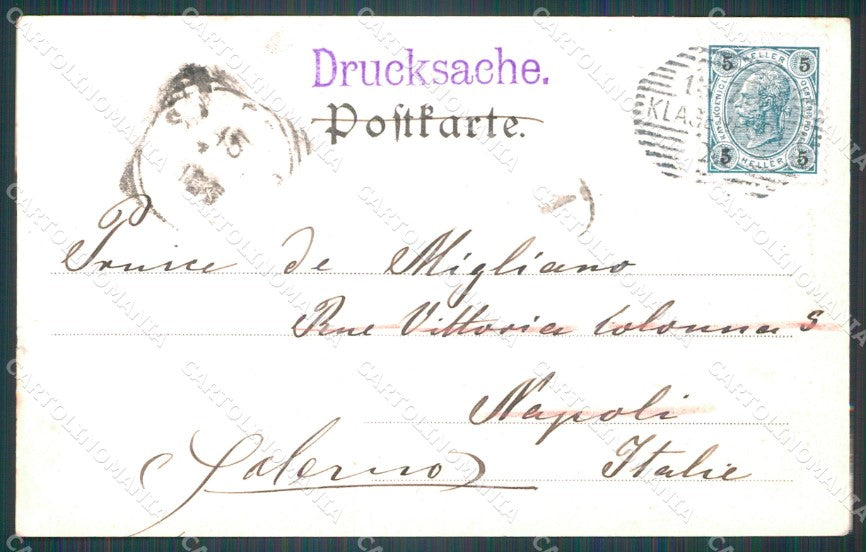 Drucksache.
Postkarte.
5 HELLER 5
KLAG
5 HELLER 5
15
Prince de Migliano
Rue Vittoria Colonna 5
Napoli
(Salerno) Italie
CARTOLINOMANIA